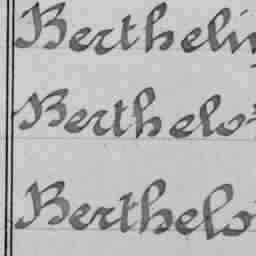 Bertheli
Berthelo
Berthelo